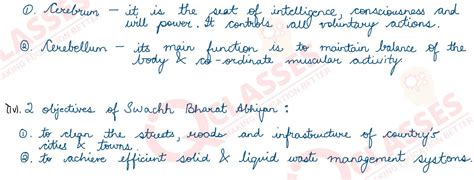 ①. Cerebrum – it is the seat of intelligence, consciousness and
will power. It controls all voluntary actions.
②. Cerebellum – its main function is to maintain balance of the
body & co-ordinate muscular activity.
(iv). 2 objectives of Swachh Bharat Abhiyan :
①. to clean the streets, roads and infrastructure of country's
cities & towns.
②. to achieve efficient solid & liquid waste management systems.
CLASSES